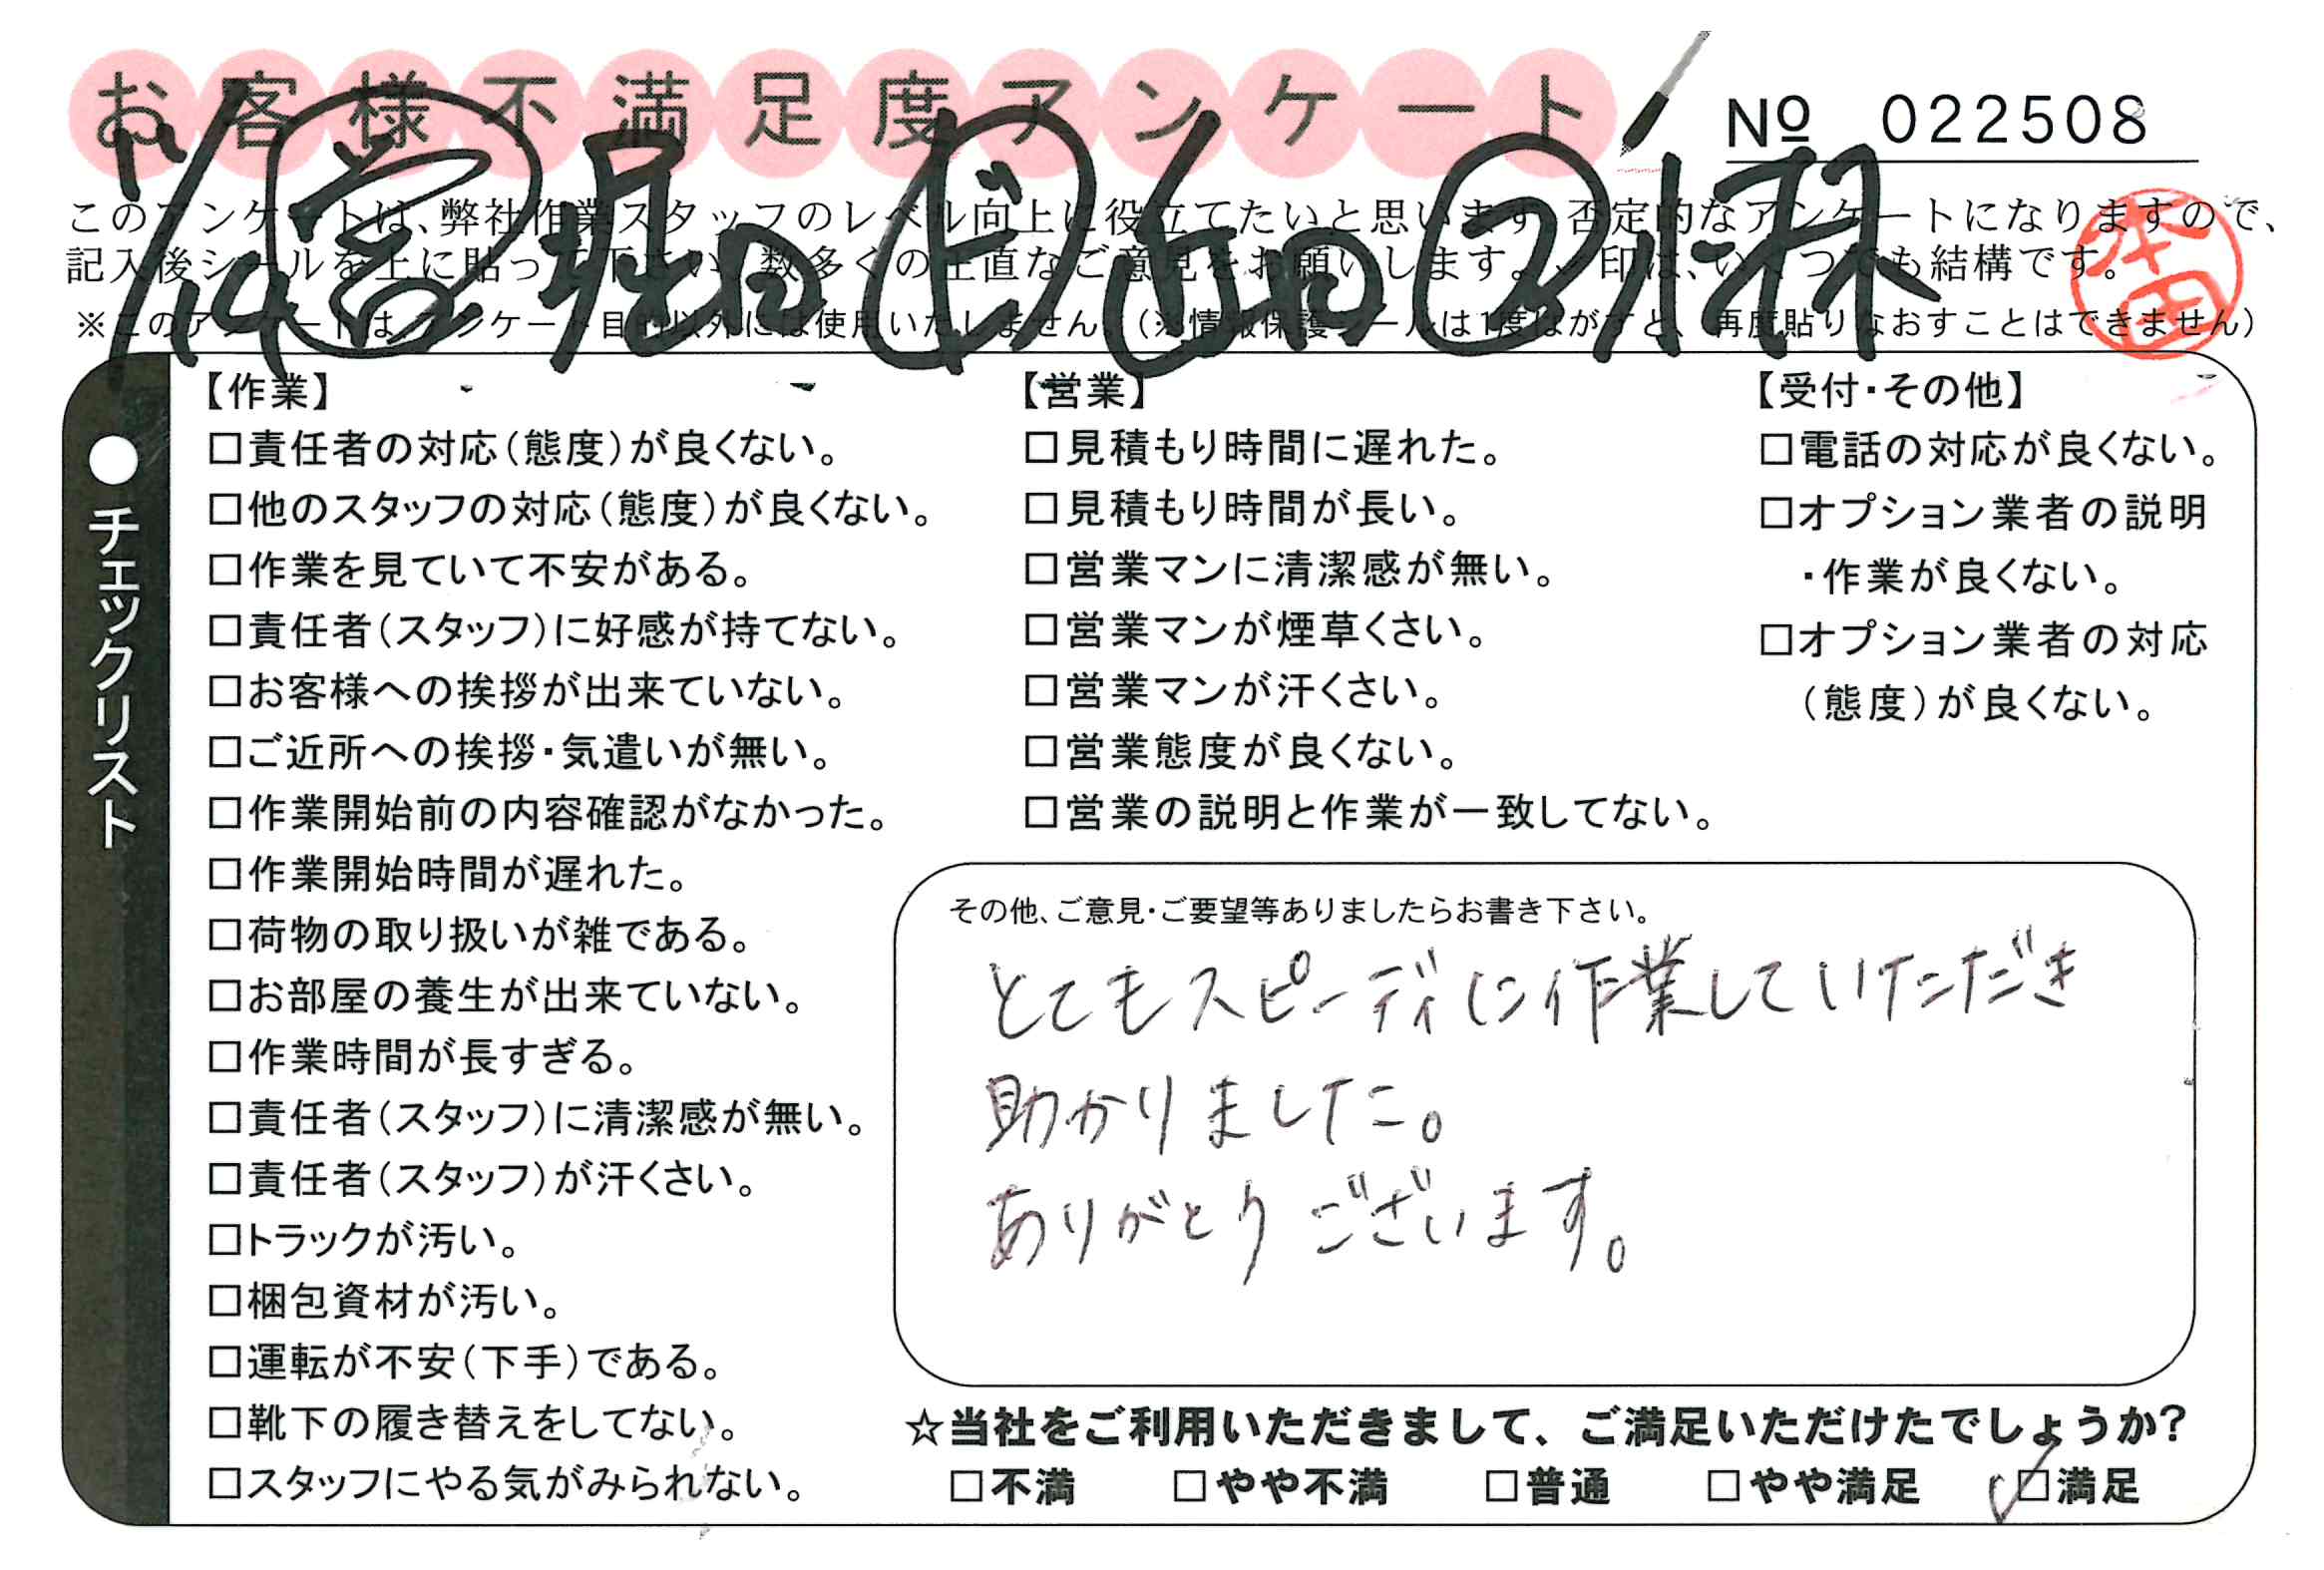 お客様不満足度アンケート
№ 022508
このアンケートは、弊社作業スタッフのレベル向上に役立てたいと思います。否定的なアンケートになりますので、
記入後シールを上に貼って下さい。数多くの正直なご意見をお願いします。✓印は、いくつでも結構です。
※このアンケートは、アンケート目的以外には使用いたしません。(※情報保護シールは1度はがすと、再度貼りなおすことはできません)
本田
●チェックリスト
【作業】
□責任者の対応(態度)が良くない。
□他のスタッフの対応(態度)が良くない。
□作業を見ていて不安がある。
□責任者(スタッフ)に好感が持てない。
□お客様への挨拶が出来ていない。
□ご近所への挨拶・気遣いが無い。
□作業開始前の内容確認がなかった。
□作業開始時間が遅れた。
□荷物の取り扱いが雑である。
□お部屋の養生が出来ていない。
□作業時間が長すぎる。
□責任者(スタッフ)に清潔感が無い。
□責任者(スタッフ)が汗くさい。
□トラックが汚い。
□梱包資材が汚い。
□運転が不安(下手)である。
□靴下の履き替えをしてない。
□スタッフにやる気がみられない。
【営業】
□見積もり時間に遅れた。
□見積もり時間が長い。
□営業マンに清潔感が無い。
□営業マンが煙草くさい。
□営業マンが汗くさい。
□営業態度が良くない。
□営業の説明と作業が一致してない。
【受付・その他】
□電話の対応が良くない。
□オプション業者の説明
・作業が良くない。
□オプション業者の対応
(態度)が良くない。
その他、ご意見・ご要望等ありましたらお書き下さい。
とてもスピーディに作業していただき
助かりました。
ありがとうございます。
☆当社をご利用いただきまして、ご満足いただけたでしょうか?
□不満 □やや不満 □普通 □やや満足 ☑満足